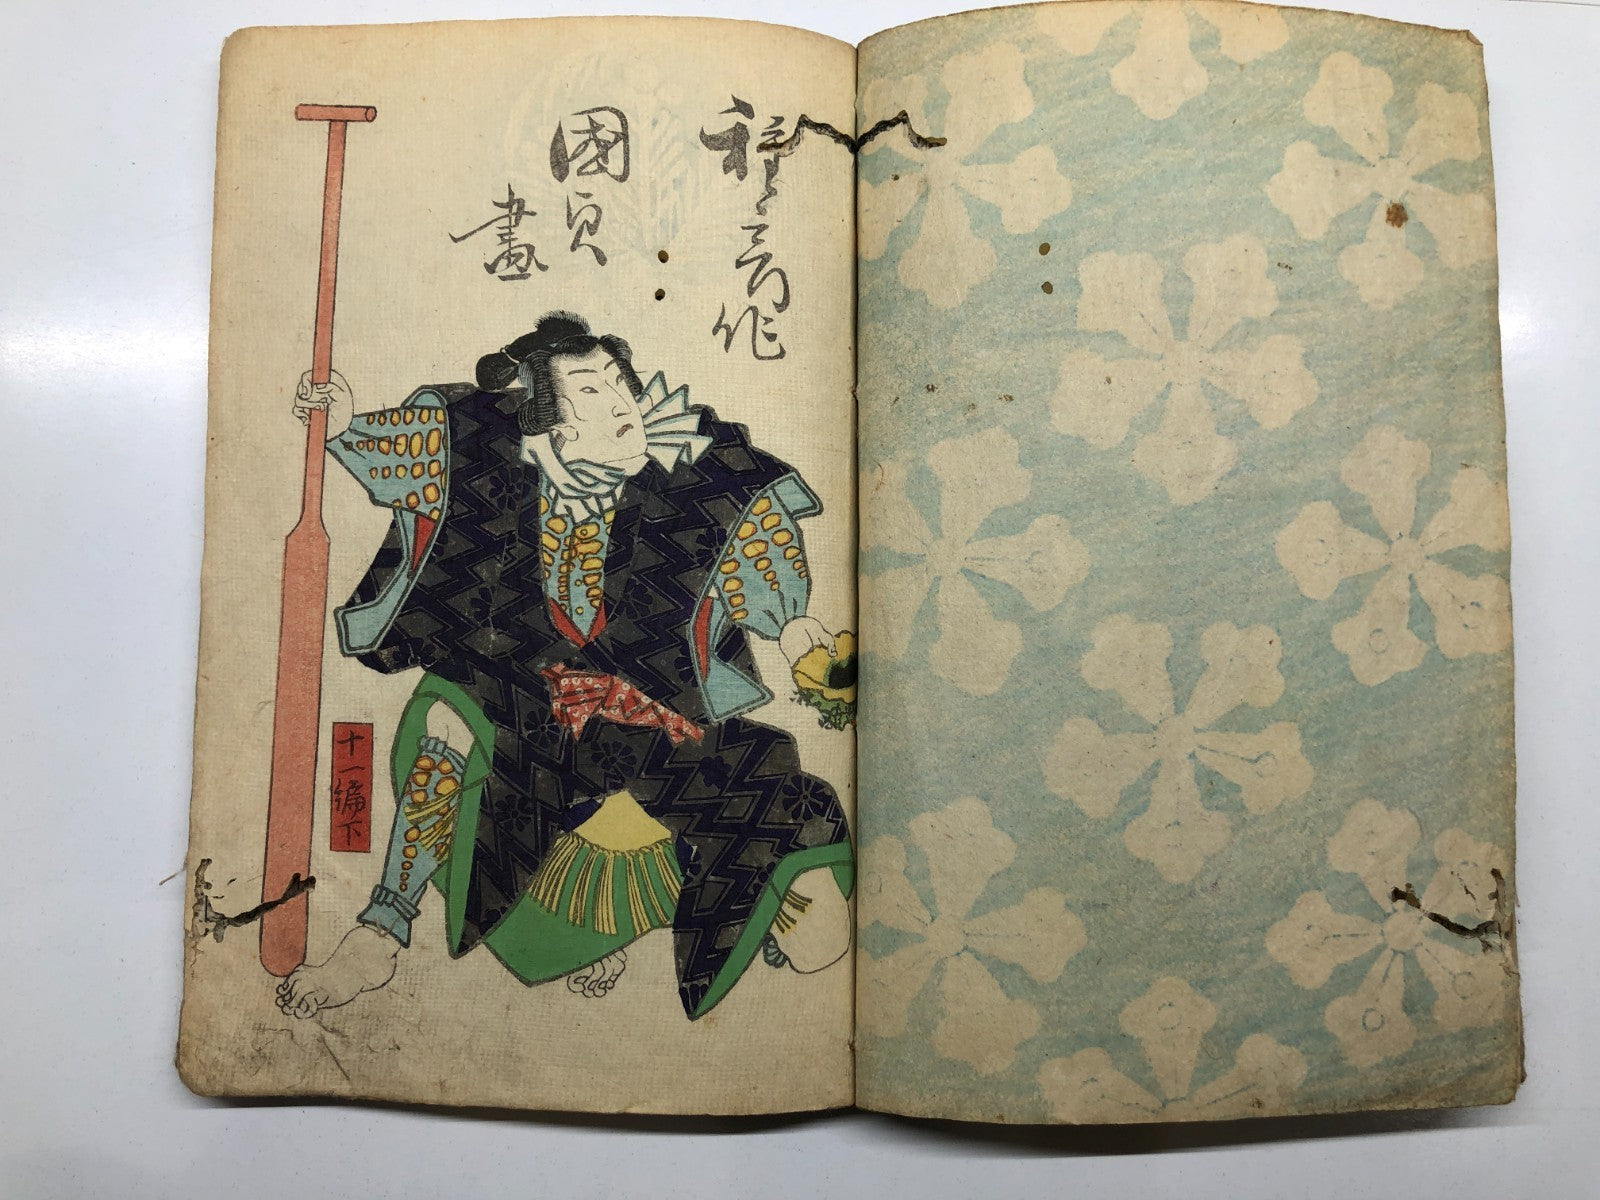 種彦作
國貞
畫
十一編下